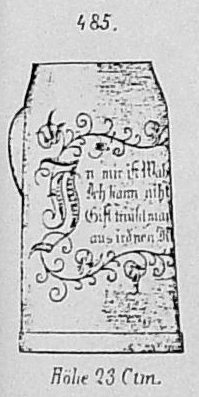 485.
In mir ist Wah
Ich kann niht
Gift trinkt man
aus irdnen
Höhe 23 Ctm.